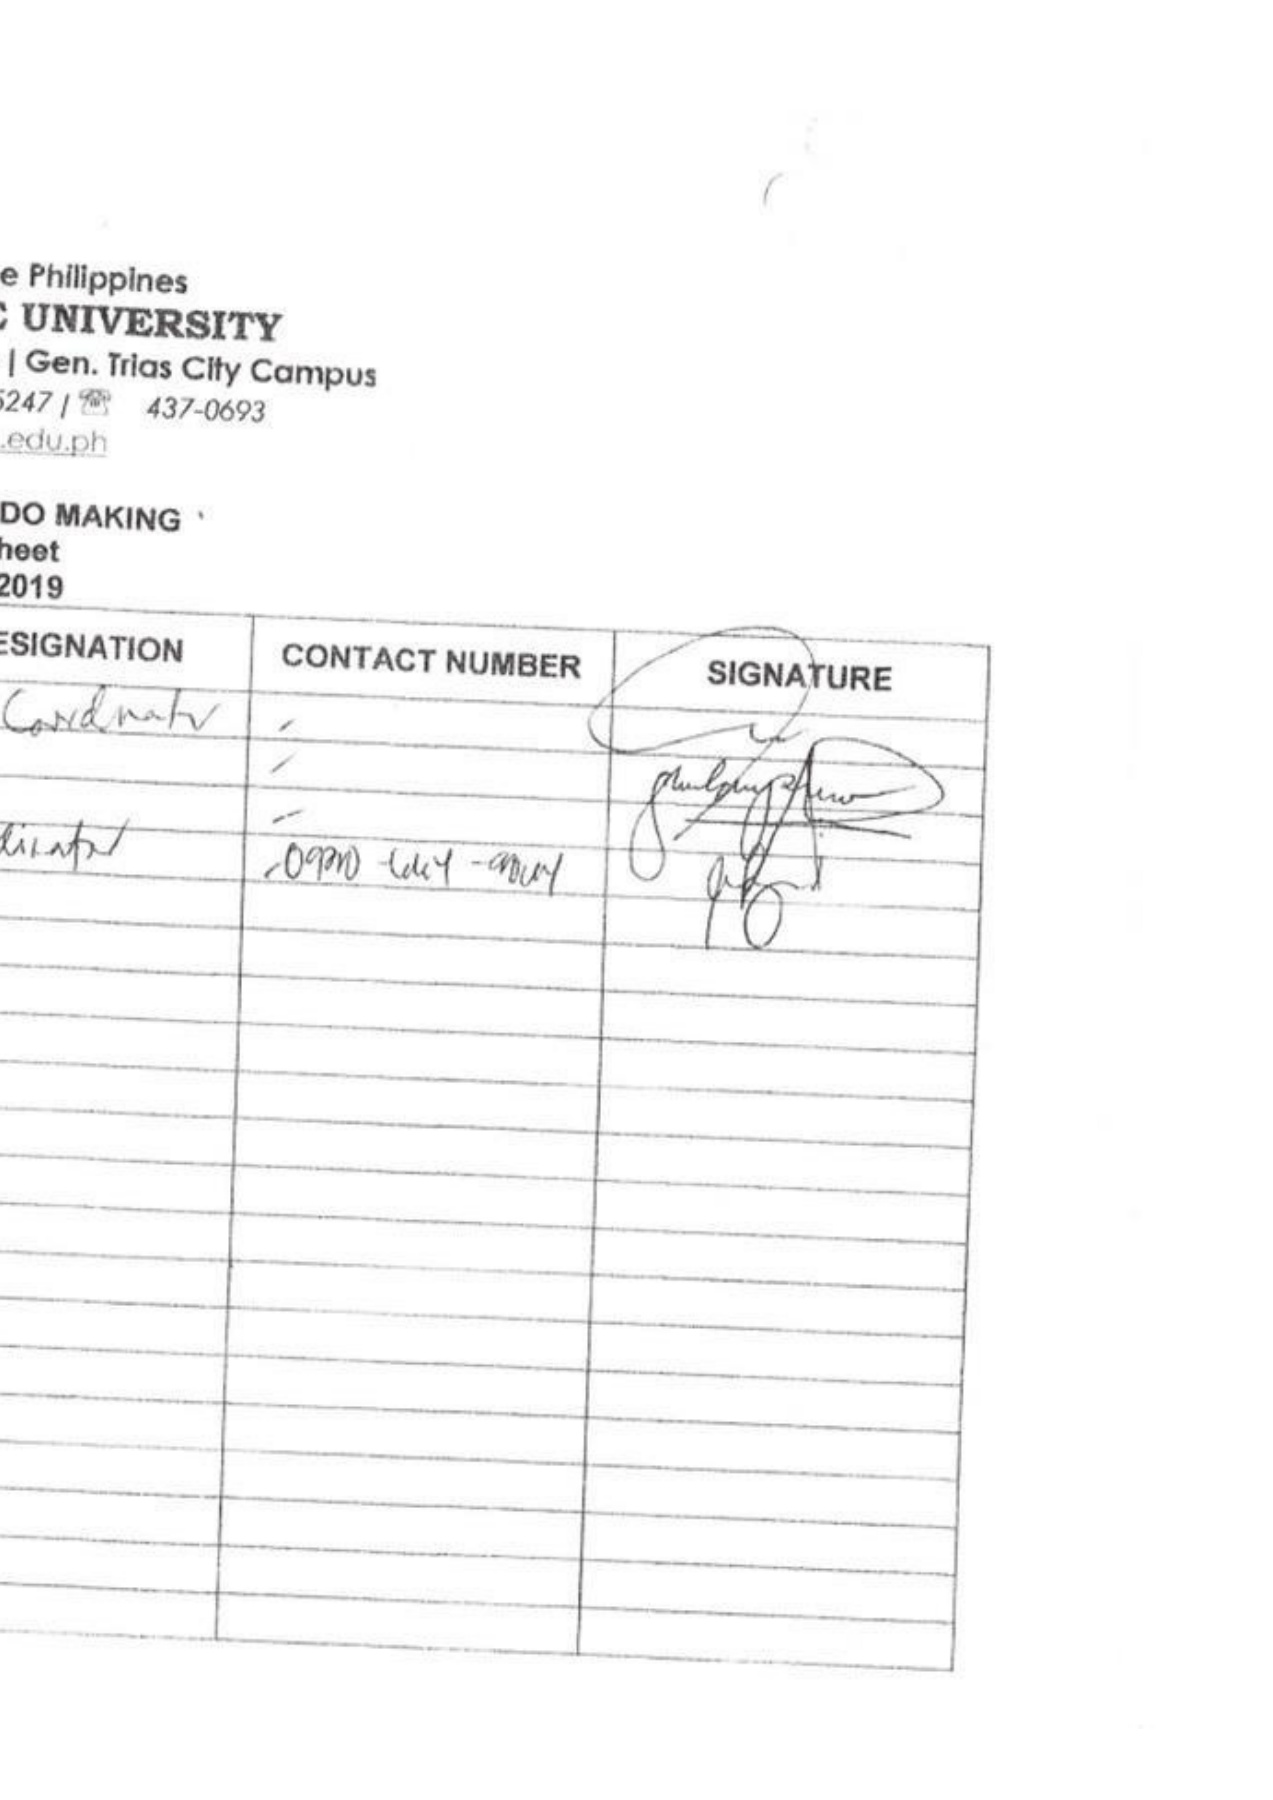 e Philippines
C UNIVERSITY
| Gen. Trias City Campus
5247 | ☏ 437-0693
.edu.ph
DO MAKING
heet
2019
ESIGNATION CONTACT NUMBER SIGNATURE
Coordinator
dinator